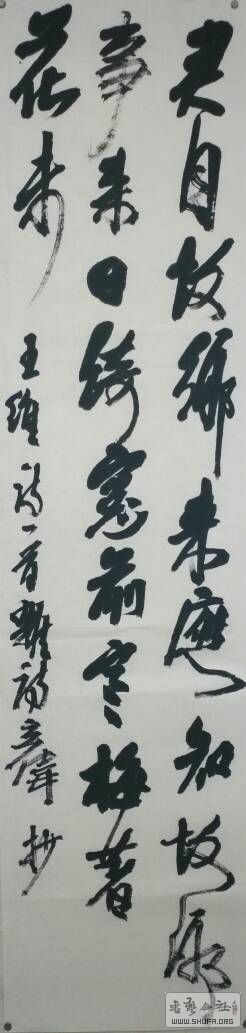 君自故鄉来應知故鄉
事来日綺窓前寒梅著
花未
王維詩一首雜詩 抄
書藝公社
WWW.SHUFA.ORG